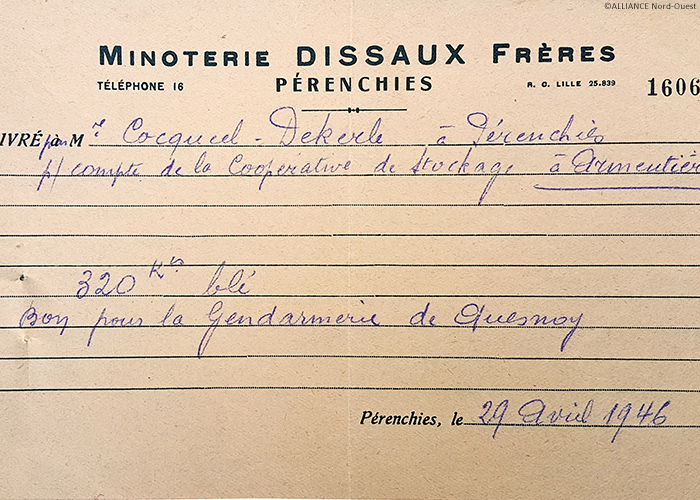 ©ALLIANCE Nord-Ouest
MINOTERIE DISSAUX FRÈRES
TÉLÉPHONE 16 PÉRENCHIES R. C. LILLE 25.839 1606
IVRÉ par M r Cocquel-Dekerle à Pérenchies
p/ compte de la Coopérative de Stockage à Armentièr
320 Kgs blé
Bon pour la Gendarmerie de Quesnoy
Pérenchies, le 29 Avril 1946